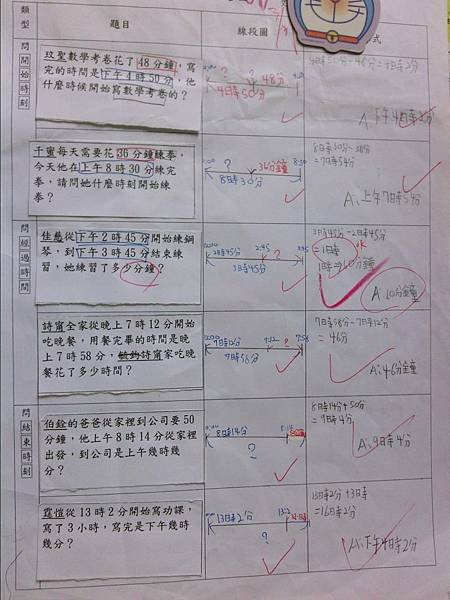 類型
題目
線段圖
式
問開始時刻
玟聖數學考卷花了48分鐘，寫
完的時間是下午4時50分，他
什麼時候開始寫數學考卷的？
?
48分
4時50分
4時50分-48分=4時2分
A:下午4時2分
千蜜每天需要花36分鐘練拳，
今天他在上午8時30分練完
拳，請問她什麼時刻開始練
拳？
?
36分鐘
8:30
8時30分
=7時54分
A:上午7時54分
問經過時間
佳慈從下午2時45分開始練鋼
琴，到下午3時45分結束練
習，她練習了多少分鐘？
2時45分
2:45
?
3:45
3時45分
3時45分-2時45分
=1時
ok
1時=60分鐘
A:60分鐘
詩甯全家從晚上7時12分開始
吃晚餐，用餐完畢的時間是晚
上7時58分，詩甯家吃晚
餐花了多少時間？
7時12分
7:12
?
7:58
7時58分
7時58分-7時12分
=46分
A:46分鐘
問結束時刻
伯銓的爸爸從家裡到公司要50
分鐘，他上午8時14分從家裡
出發，到公司是上午幾時幾
分？
8時14分
8:14
50分鐘
?
8時14分+50分
=9時4分
A:9時4分
霆愷從13時2分開始寫功課，
寫了3小時，寫完是下午幾時
幾分？
13時2分
13:2
?
13時2分+3時
=16時2分
A:下午4時2分